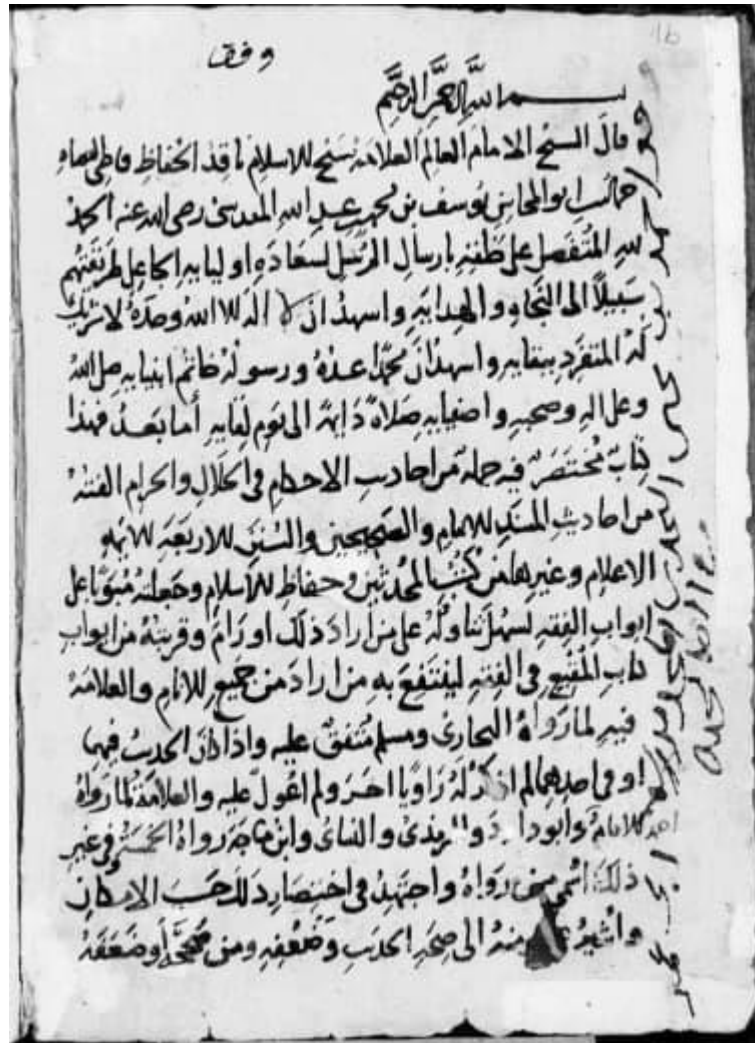 16
وقف
بسم الله الرحمن الرحيم
قال الشيخ الامام العالم العلامة شيخ الاسلام ناقد الحفاظ قاضي القضاة
ابو المحاسن يوسف بن محمد بن عبد الله المقدسي رضي الله عنه الحمد
لله المتفضل على خلقه بارسال الرسل لسعادة اوليايه الجاعل طريقتهم
سبيلا الى النجاه والهدايه واشهد ان لا اله الا الله وحده لا شريك
له المتفرد ببقايه واشهد ان محمدا عبده ورسوله خاتم انبيايه صلى الله
وعلى اله وصحبه واصفيايه صلاة دايمة الى يوم لقايه أما بعد فهذا
كتاب مختصر فيه جملة من احاديث الاحكام في الحلال والحرام
من احاديث المسند للامام والصحيحين والسنن الاربعة للايمه
الاعلام وغيرها من كتب المحدثين وحفاظ الاسلام وجعلته مبوبا على
ابواب الفقه ليسهل تناوله على من اراد ذلك او رام وقربته من ابواب
كتاب المقنع في الفقه لينتفع به من اراد من جميع الانام والعلامة
فيه لما رواه البخاري ومسلم متفق عليه واذا كان الحديث فيهما
او في احدهما لم اذكر له راويا اخر ولم اعول عليه والعلامة لما رواه
احمد الامام وأبو داود والترمذي والنسائي وابن ماجة رواه الخمسة وفي غير
ذلك اسمي من رواه واجتهد في اختصار ذلك حسب الامكان
وأشير منه الى صحة الحديث وضعفه ومن صححه أو ضعفه